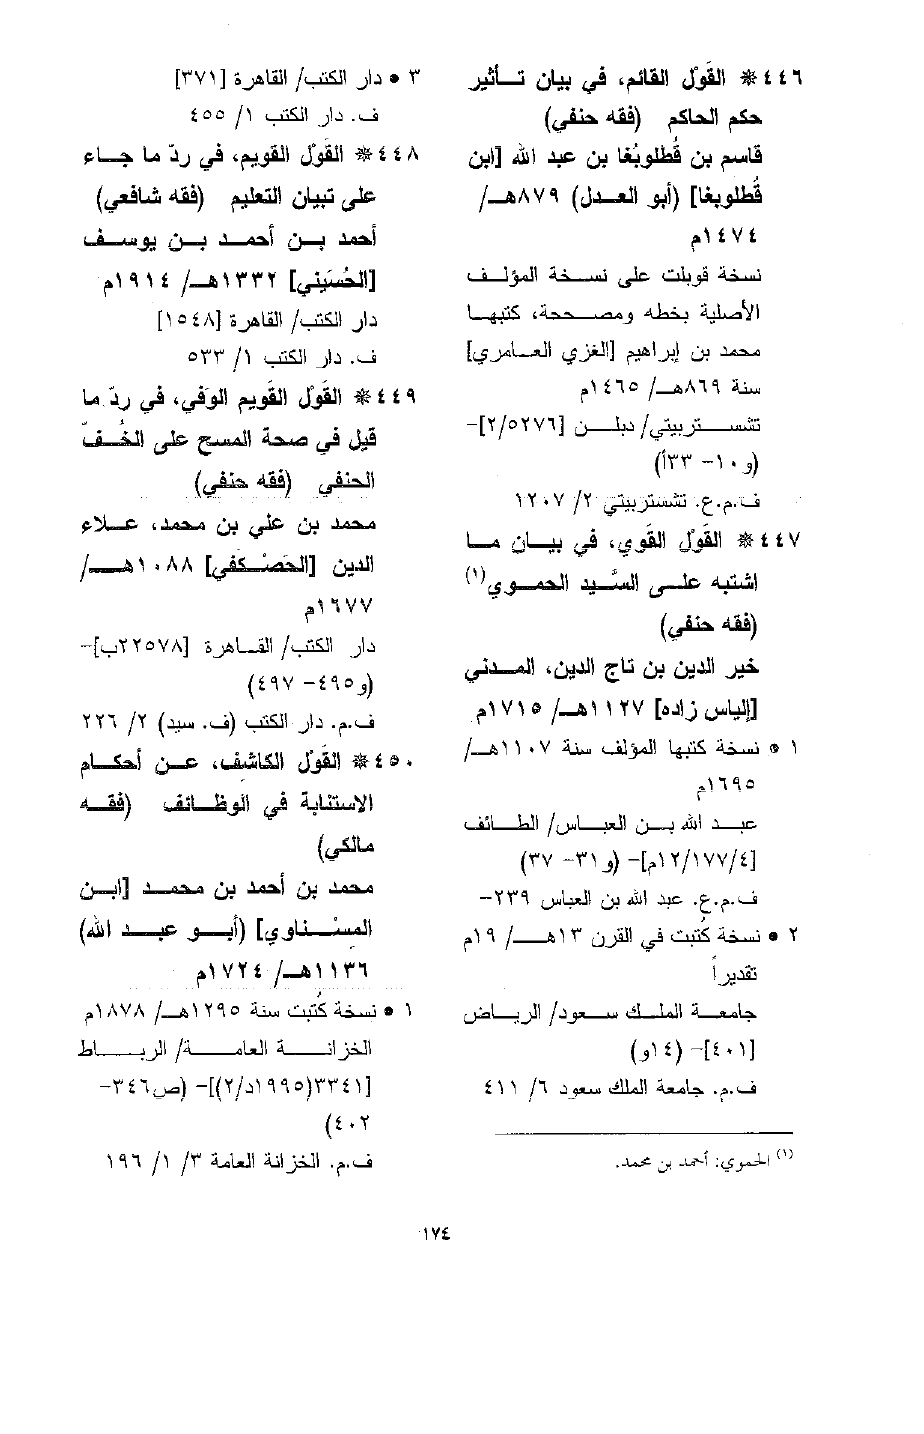 ٤٤٦ * القَوْل القائم، في بيان تـأثير
حكم الحاكم (فقه حنفي)
قاسم بن قُطلوبُغا بن عبد الله [ابن
قُطلوبغا] (أبو العـدل) ٨٧٩هـ/
١٤٧٤م
نسخة قوبلت على نسـخة المؤلـف
الأصلية بخطه ومصـححة، كتبهـا
محمد بن إبراهيم [الغزي العـامري]
سنة ٨٦٩هـ/ ١٤٦٥م
تشسـتربيتي/ دبلـن [٢/٥٢٧٦]-
(و١٠- ٣٣أ)
ف.م.ع. تشستربيتي ٢/ ١٢٠٧
٤٤٧ * القَوْل القَوي، في بيـان مـا
اشتبه علـى السَّيد الحمـوي(١)
(فقه حنفي)
خير الدين بن تاج الدين، المـدني
[إلياس زاده] ١١٢٧هـ/ ١٧١٥م
١ • نسخة كتبها المؤلف سنة ١١٠٧هـ/
١٦٩٥م
عبـد الله بـن العبـاس/ الطـائف
[١٢/١٧٧/٤م]- (و٣١- ٣٧)
ف.م.ع. عبد الله بن العباس ٢٣٩-
٢ • نسخة كُتبت في القرن ١٣هـ/ ١٩م
تقديراً
جامعـة الملـك سـعود/ الريـاض
[٤٠١]- (١٤و)
ف.م. جامعة الملك سعود ٦/ ٤١١
(١) الحموي: أحمد بن محمد.
٣ • دار الكتب/ القاهرة [٣٧١]
ف. دار الكتب ١/ ٤٥٥
٤٤٨* القَوْل القويم، في ردّ ما جـاء
على تبيان التعليم (فقه شافعي)
أحمد بـن أحمـد بـن يوسـف
[الحُسَيني] ١٣٣٢هـ/ ١٩١٤م
دار الكتب/ القاهرة [١٥٤٨]
ف. دار الكتب ١/ ٥٣٣
٤٤٩* القَوْل القَويم الوَفي، في ردّ ما
قيل في صحة المسح على الخُـفّ
الحنفي (فقه حنفي)
محمد بن علي بن محمد، عـلاء
الدين [الحَصْـكَفي] ١٠٨٨هــ/
١٦٧٧م
دار الكتب/ القـاهرة [٢٢٥٧٨ب]-
(و٤٩٥- ٤٩٧)
ف.م. دار الكتب (ف. سيد) ٢/ ٢٢٦
٤٥٠* القَوْل الكاشف، عـن أحكـام
الاستنابة في الوظـائف (فقـه
مالكي)
محمد بن أحمد بن محمـد [ابـن
المِسْـناوي] (أبـو عبـد الله)
١١٣٦هـ/ ١٧٢٤م
١ • نسخة كُتبت سنة ١٢٩٥هـ/ ١٨٧٨م
الخزانـة العامـة/ الربـاط
[٣٣٤١(١٩٩٥د/٢)]- (ص٣٤٦-
٤٠٢)
ف.م. الخزانة العامة ٣/ ١/ ١٩٦
١٧٤